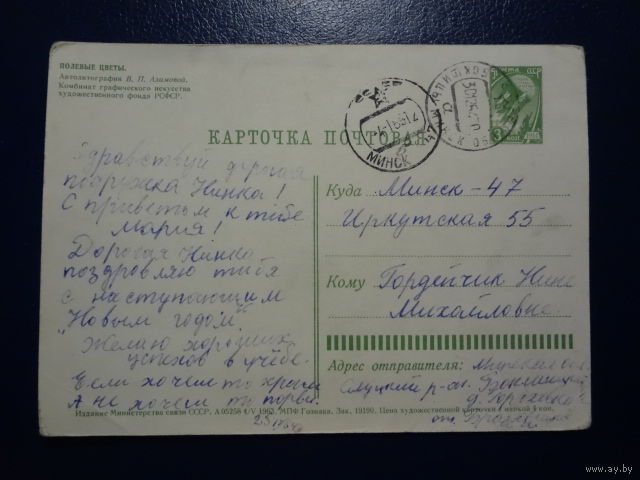 ПОЛЕВЫЕ ЦВЕТЫ.
Автолитография В. П. Азамовой.
Комбинат графического искусства
художественного фонда РСФСР.
КАРТОЧКА ПОЧТОВАЯ
МИНСК
Здравствуй дорогая
подружка Нинка!
С приветом к тибе
Мария!
Дорогая Нинка
поздровляю тибя
с наступающим
"Новым годом"
"Желаю хороших
успехов в учёбе.
Если хочеш то храни
А не хочеш то порви.
Куда Минск-47
Иркутская 55
Кому Гордейчик Нине
Михайловне
Адрес отправителя: Минская обл.
Слуцкий р-он
д.
от.
Издание Министерства связи СССР. А 05258 1963. МПФ Гознака. Зак. 19190. Цена художественной карточки с маркой 4 коп.
ay.by